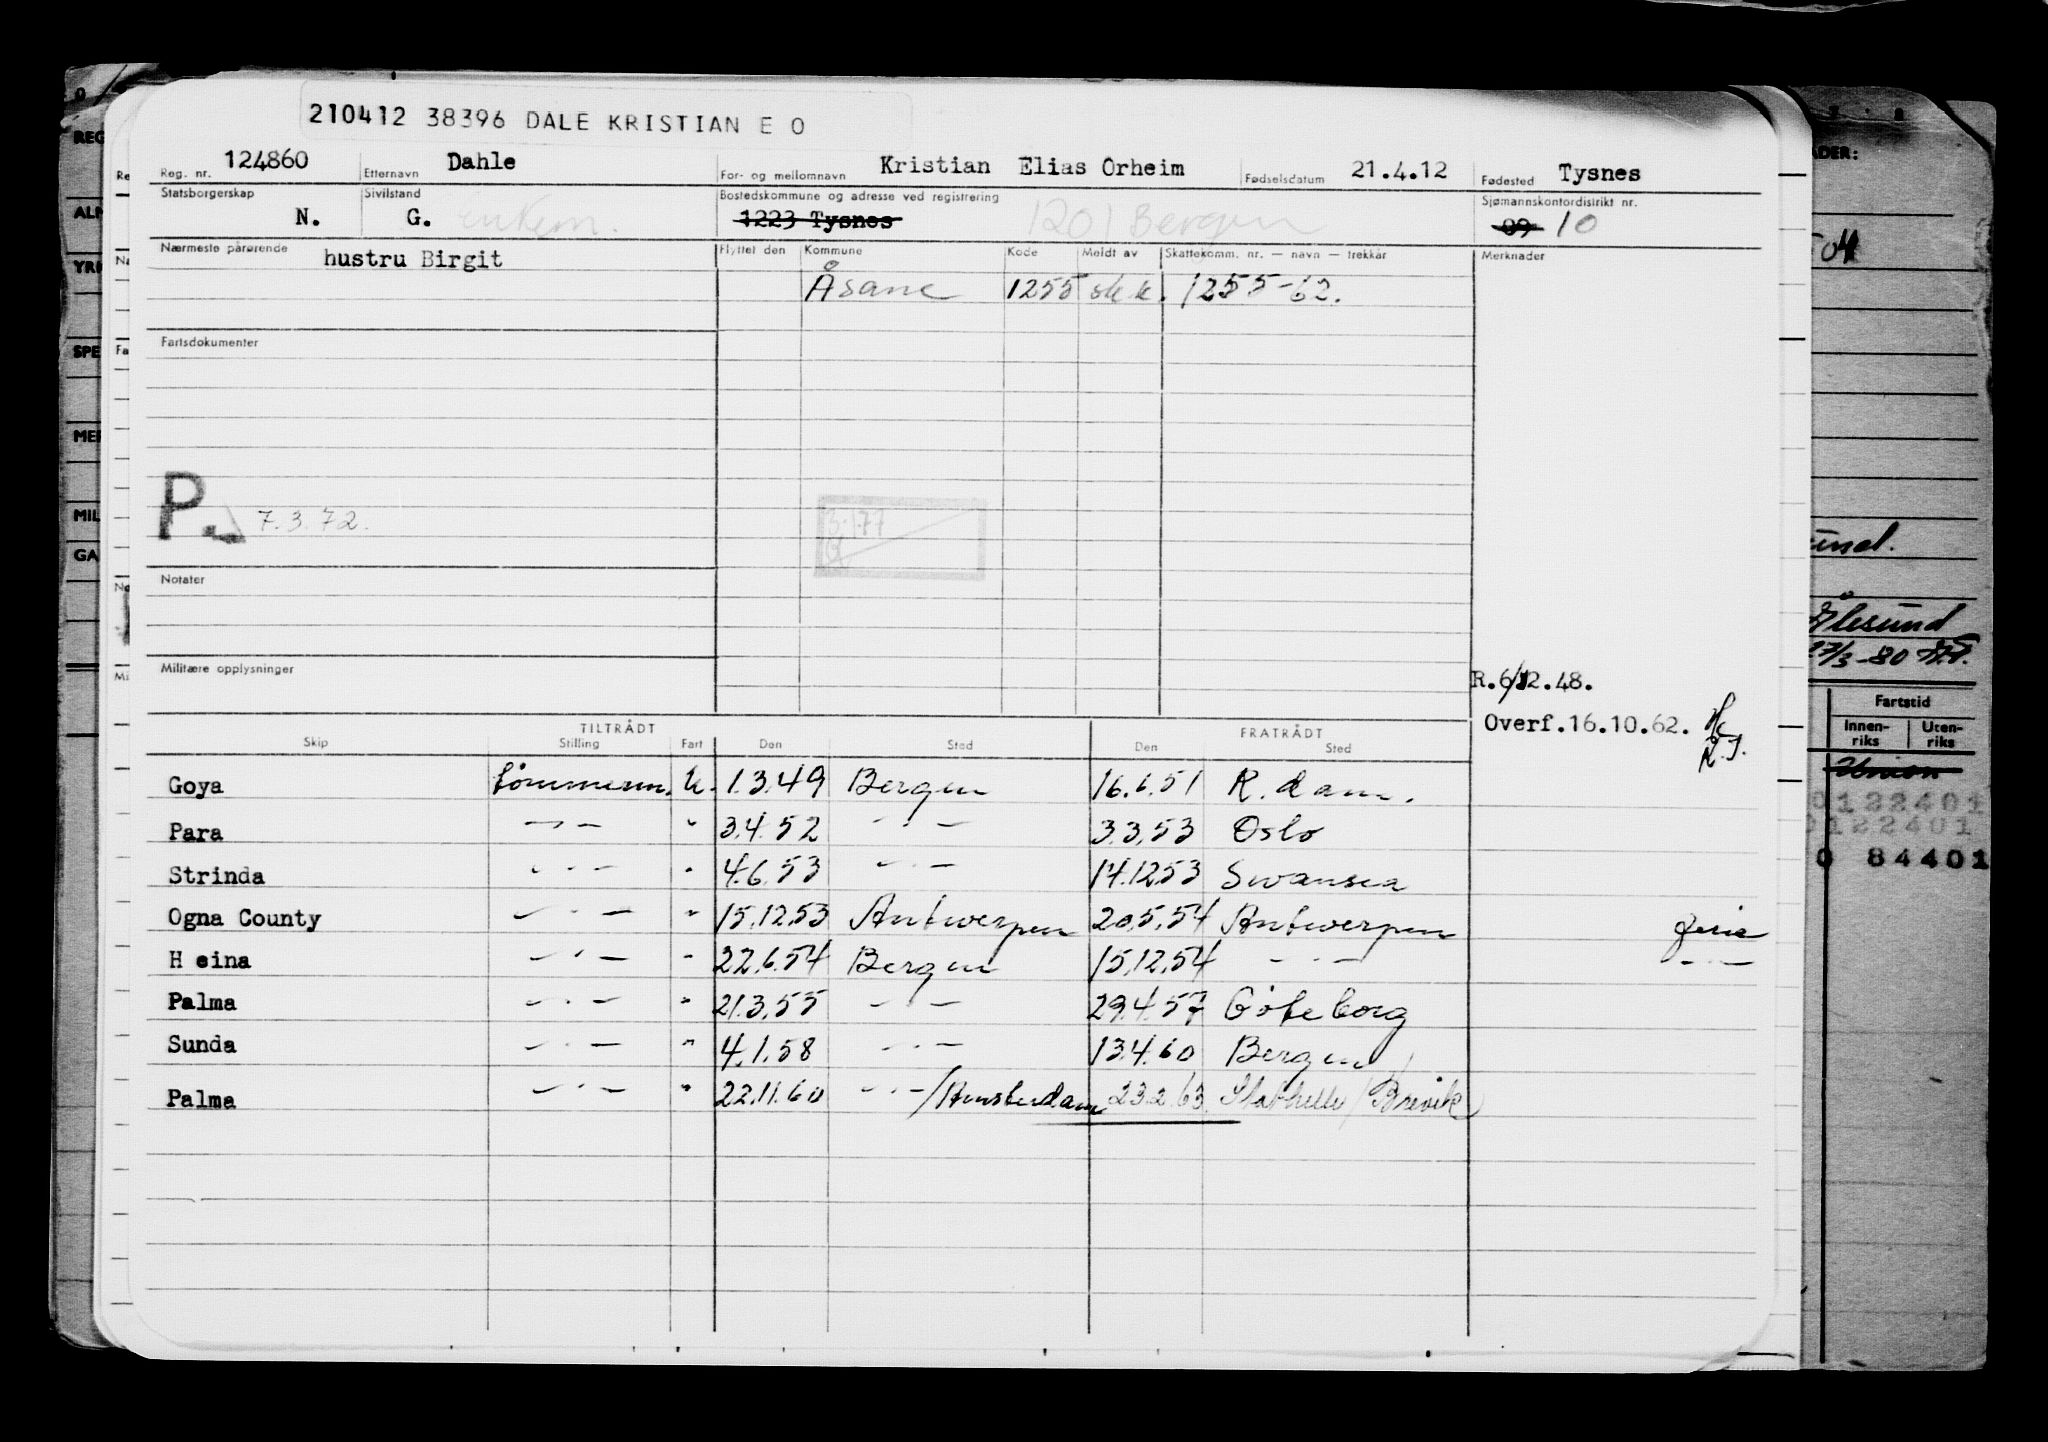 210412 38396 DALE KRISTIAN E O
Reg. nr. 124860 Etternavn Dahle For- og mellomnavn Kristian Elias Orheim Fødselsdatum 21.4.12 Fødested Tysnes
Statsborgerskap N. Sivilstand G. enkem. Bostedskommune og adresse ved registrering 1223 Tysnes 1201 Bergen Sjømannskontordistrikt nr. 09 10
Nærmeste pårørende hustru Birgit Flyttet den Kommune Kode Meldt av Skattekomm. nr. — navn — trekkår Merknader
Åsane 1255 sk.k. 1255-62.
Fartsdokumenter
P. 7.3.72.
3.1.77
Notater
Militære opplysninger
R.6/12.48.
Overf.16.10.62.
TILTRÅDT FRATRÅDT
Skip Stilling Fart Den Sted Den Sted
Goya tømmerm. U. 1.3.49 Bergen 16.6.51 R.dam.
Para — " — " 3.4.52 — " — 3.3.53 Oslo
Strinda — " — " 4.6.53 — " — 14.12.53 Swansea
Ogna County — " — " 15.12.53 Antwerpen 20.5.54 Antwerpen ferie
H eina — " — " 22.6.54 Bergen 15.12.54 — " — — " —
Palma — " — " 21.3.55 — " — 29.4.57 Göteborg
Sunda — " — " 4.1.58 — " — 13.4.60 Bergen
Palma — " — " 22.11.60 — " — /Amsterdam 23.2.63. Stathelle/Brevik
REG
ALM
YRK
SPE
MER
MIL
GA
ADER:
04
sund.
Ålesund
27/3-80
Fartstid
Innen-riks Uten-riks
Union
0122401
0122401
0 84401